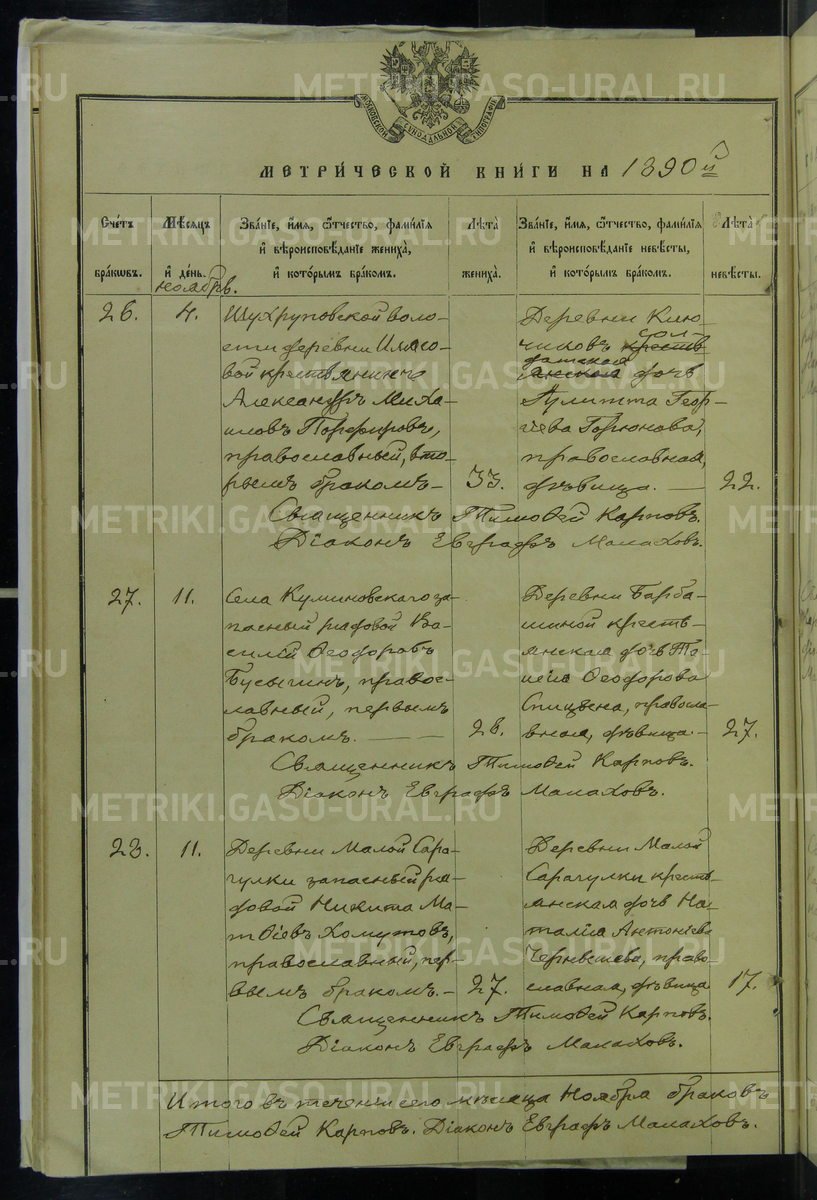 МОСКОВСКОЙ СѴНОДАЛЬНОЙ ТИПОГРАФІИ
МЕТРИ́ЧЕСКОЙ КНИ́ГИ НА 1890 й
Сче́тъ бра́кωвъ.
Мѣ́сяцъ и҆ де́нь.
Зва́нїе, и҆́мѧ, ѻ҆́тчество, фами́лїѧ
и҆ вѣроисповѣ́данїе жениха̀,
и҆ кото́рымъ бра́комъ.
Лѣ́та жениха̀.
Зва́нїе, и҆́мѧ, ѻ҆́тчество, фами́лїѧ
и҆ вѣроисповѣ́данїе невѣ́сты,
и҆ кото́рымъ бра́комъ.
Лѣ́та невѣ́сты.
ноябрь.
26.
4.
Шухруповской воло-
сти деревни
крестьянинъ
Александръ Миха-
иловъ Порфировъ,
православный, вто-
рымъ бракомъ-
33.
Деревни Клю-
чиковъ крестъ сол-
датская
анская дочь
Іулитта Геор-
гіева Горюнова,
православная,
дѣвица. —
22.
Священникъ Тимоѳей Карповъ.
Діаконъ Евграфъ Малаховъ.
27.
11.
Села Куминовскаго за-
пасный рядовой Ва-
силій Ѳеодоровъ
Бусыгинъ, правос-
лавный, первымъ
бракомъ. —
28.
Деревни Барба-
шиной кресть-
янская дочь
Ѳеодорова
Спицына, правосла-
вная, дѣвица-
27.
Священникъ Тимоѳей Карповъ.
Діаконъ Евграфъ Малаховъ.
28.
11.
Деревни Малой Сара-
гулки запасный ря-
довой Никита Ма-
тѳіевъ Хомутовъ,
православный, пер-
вымъ бракомъ.-
27.
Деревни Малой
Сарагулки кресть-
янская дочь На-
талія Антоніева
право-
славная, дѣвица
17.
Священникъ Тимоѳей Карповъ.
Діаконъ Евграфъ Малаховъ.
Итого въ теченіи сего мѣсяца Ноября браковъ
Тимоѳей Карповъ. Діаконъ Евграфъ Малаховъ.
METRIKI.GASO-URAL.RU